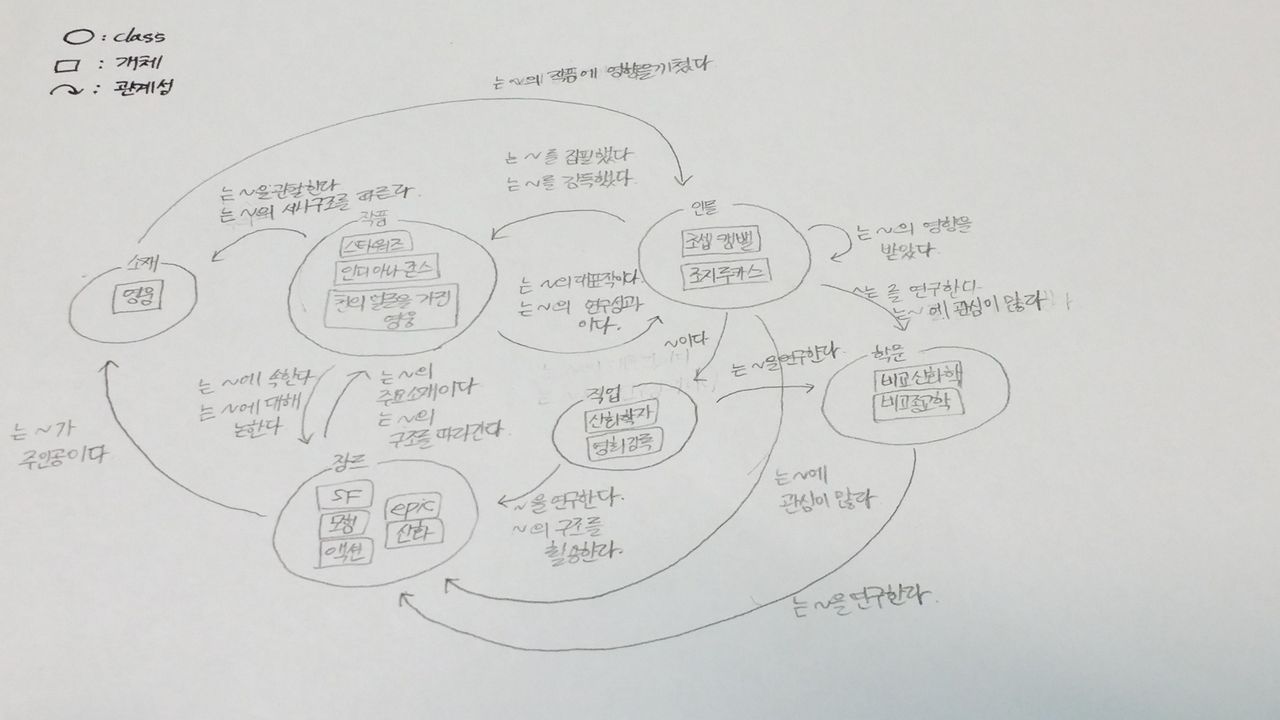 ○ : class
□ : 개체
: 관계성
는 ~의 작품에 영향을 끼쳤다
는 ~를 집필했다
는 ~를 감독했다.
는 ~을 관찰한다
는 ~의 서사구조를 따른다.
작품
스타워즈
인디아나 존스
천의 얼굴을 가진
영웅
인물
조셉 캠벨
조지루카스
는 ~의 영향을
받았다.
소재
영웅
는 ~의 대표작이다.
는 ~의 연구성과
이다.
~는 를 연구한다.
는 ~에 관심이 많다
~이다
는 ~을 연구한다.
학문
비교신화학
비교종교학
직업
신화학자
영화감독
는 ~에 속한다
는 ~에 대해
논한다
는 ~의
주요소재이다
는 ~의
구조를 따라간다.
는 ~가
주인공이다
장르
SF
모험
액션
epic
신화
~을 연구한다.
~의 구조를
활용한다.
는 ~에
관심이 많다
는 ~을 연구한다.